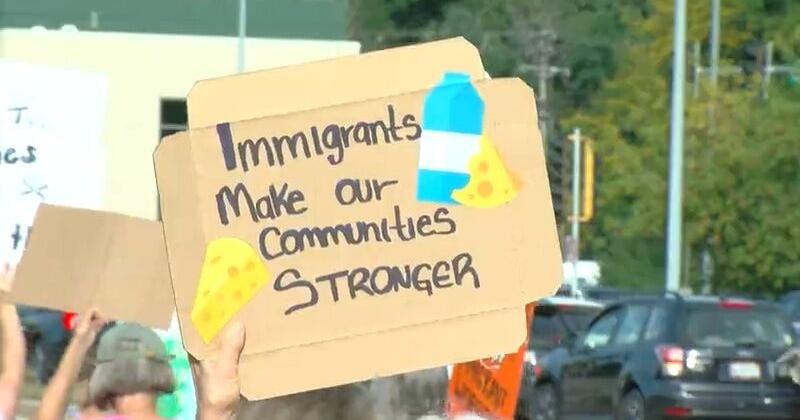 Immigrants
Make our
Communities
STRONGER